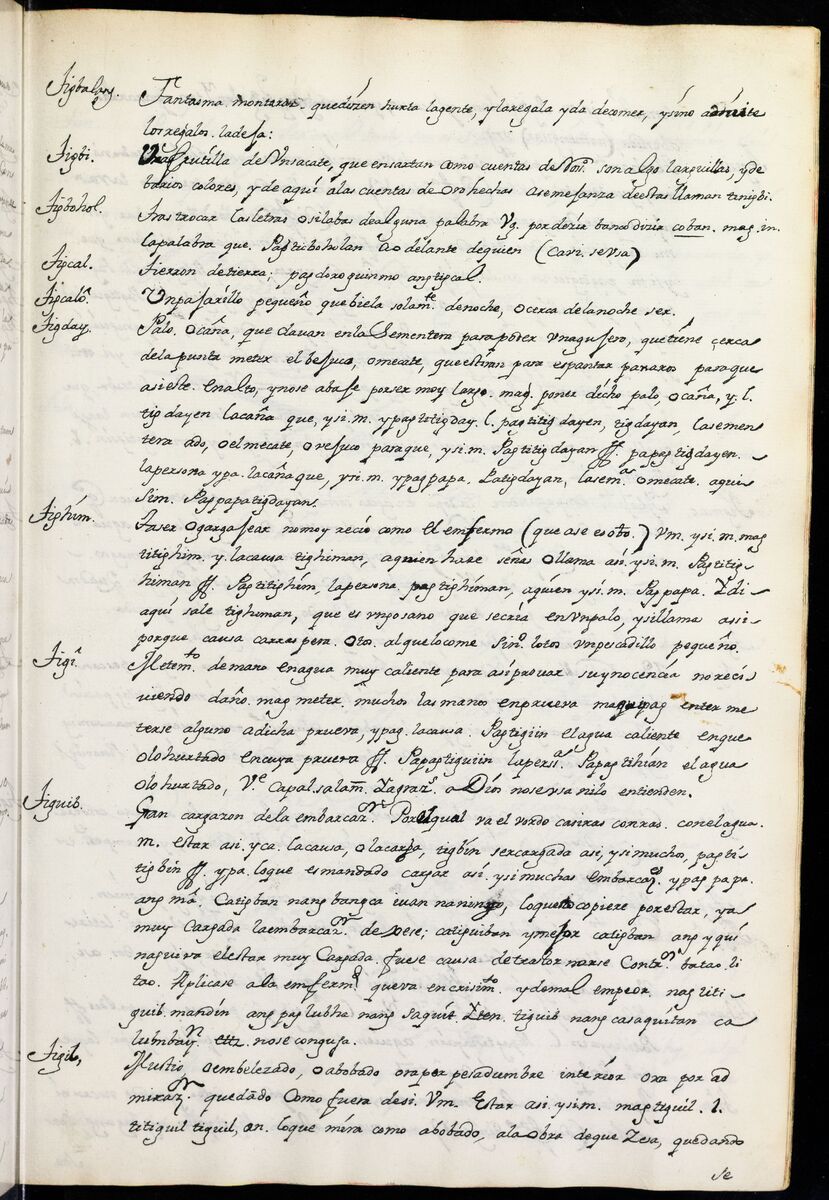 Tigbalang. Fantasma montaras. que dizen hurta la gente, y la regala y da de comer, y si no admite
los regalos. la deja:
Tigbi. Una frutilla de Un sacate, que ensartan como cuentas de Ros.º son algo larguillas, y de
barios colores, y de aqui á las cuentas de oro hechas a semejanza de estas llaman tanigbi.
Tigbohol. Trastrocar las letras o silabas de alguna palabra Vg. por dezir banco dizir coban. mag. in.
la palabra que. Pagticboholan ao delante de quien (Cavi. se usa)
Tigcal. Tierron de tierra; pagdoroguinmo ang tigcal.
Tigcalô. Un pajarillo pequeño que buela solam.te de noche, o cerca de la noche ser.
Tigday. Palo, o caña, que clavan en la Sementera para poder Un agujero, que tiene cerca
de la punta meter el bejuco, o mecate, que estiran para espantar pararos para que
asi este. en alto, y no se abaje por ser moy largo. mag. poner dicho palo, o caña, y. l.
tigdayen la caña que, y si. m. ypagtitigday. l. pagtitig dayen, tigdayan, la semen
tera ado, o el mecate, o vejuco para que, y si. m. Pagtitigdayan ff. papagtigdayen.
la persona ypa. la caña que, y si. m. ypagpapa. Patigdayan, la sem.ª o mecate, a qui
si m. Pagpapatigdayan.
Tighím. Toser o gargajear no moy recio como el enfermo (que ase es obo.) Vm. y si. m. mag
titighim. y. la causa tighiman, a quien hase señas o llama así. y si. m. Pagtitig
himan ff. Pagtitighím, la persona pagtighíman, a quien y si. m. Pagpapa. Y di
aquí sale tighiman, que es un gusano que se cria en Un palo, y si llama asi
porque causa carraspera. Oto. al que lo come Sin.º lotos Un pescadillo pequeño.
Tigî. Metem.to de mano en agua muy caliente para así provar su ynocencia no reci
viendo daño. mag meter. muchos las manos en prueva maguipag entrer me
terse alguno a dicha prueva, y pag. la causa. Pagtigiin el agua caliente en que
o lo hurtado en cuya prueva ff. Papagtiguiin la pers.ª Papagtihían el agua
o lo hurtado, V.e Capal. salam. Yagraz.s a Díos no se usa ni lo entienden.
Tiguib. Gran cargazon de la embarcaz.on Por el qual va el bordo casi ras con ras. con el agua.
m. Estar asi. y ca. la causa, o la carga, tigbín ser cargada asi, y si mucho, pagti
tigbin ff. y pa. lo que es mandado cargar asi. y si muchas embarcaz.es y pagpapa.
ang mâ. Catigban nang bangca iuan naninyo, lo que no copiere por estar, ya
muy Cargada la embarcaz.on de dexe; catiguiban y mejor catigban ang y qui
naguiva el estar muy Cargada. fuese causa de trastornarse Contr.on batao. li
tao. Aplicase a la enferm.d que va en crisim.to y de mal empeor. nagtiti
guib. mandin ang paglubha nang saquit. Yten. tiguib nang casaquitan ca
lumbay.n etta. no se congusa.
Tigil, Mustio o embelezado, o abobado ora por pesadumbre interior ora por ad
miraz.on quedado como fuera de si. Vm. Estar asi. y si m. magtiguil. l.
titiguil tiguil, an. lo que mira como abobado, a la obra de que Zesa, quedando
se